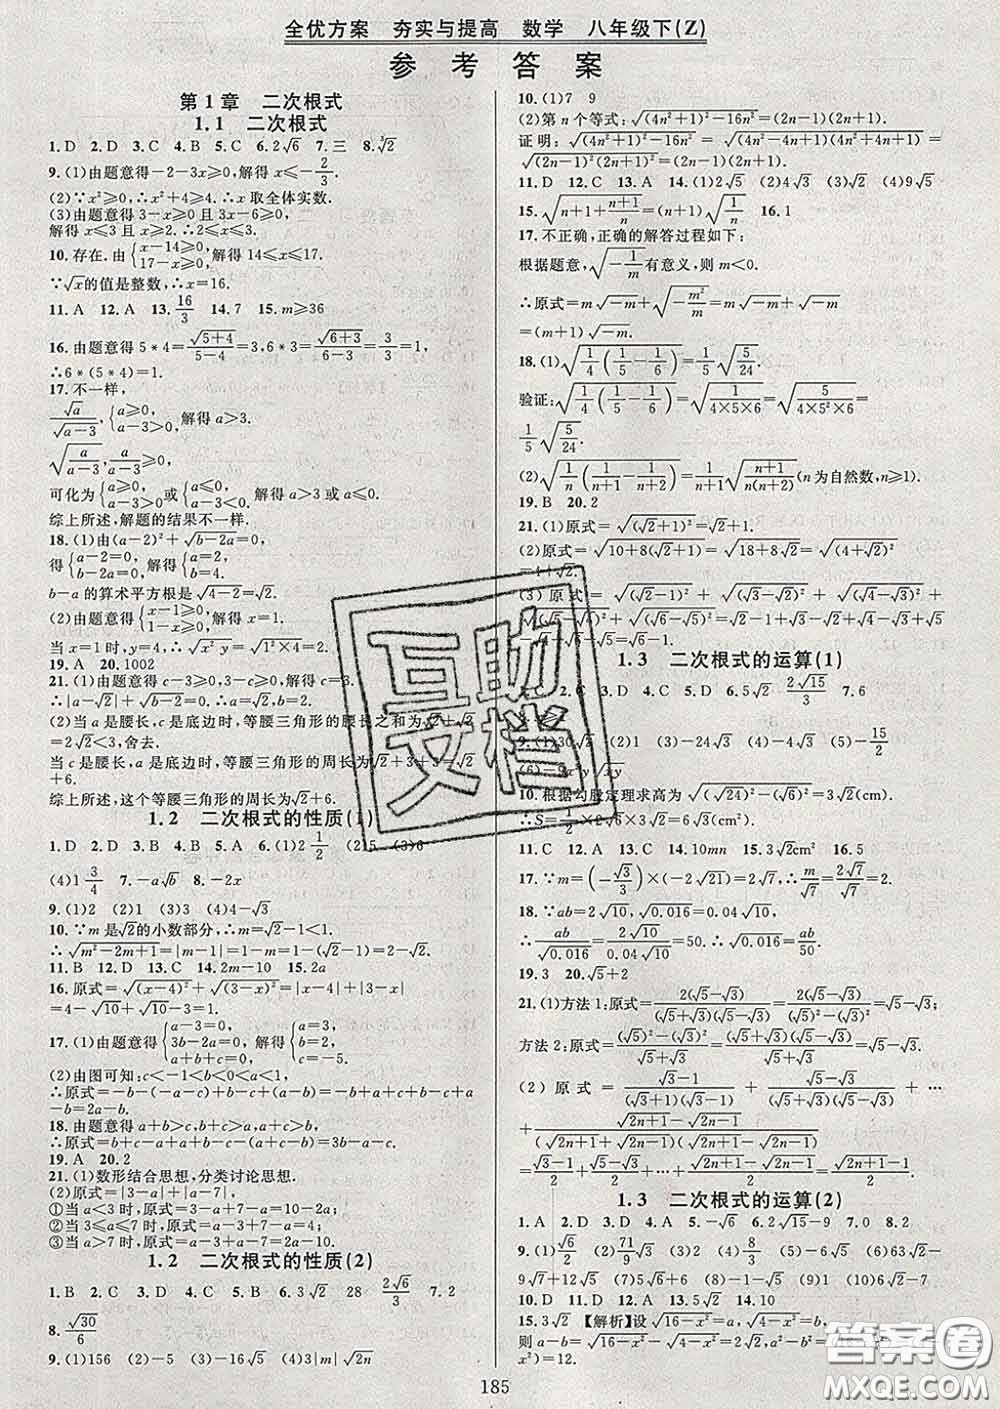 全优方案 夯实与提高 数学 八年级下(Z)
参考答案
第1章 二次根式
1.1 二次根式
1.D 2.D 3.C 4.B 5.C 6.2√6 7.三 8.∛2
9.(1)由题意得-2-3x≥0,解得 x≤-2/3.
(2)∵x²≥0,∴x²+4≥4.∴x取全体实数.
(3)由题意得3-x≥0且3x-6≥0,
解得 x≤3且x≥2.∴2≤x≤3.
10.存在.由{x-14≥0, 17-x≥0,解得14≤x≤17.
∵√x的值是整数,∴x=16.
11.A 12.A 13.16/3 14.7 15.m≥36
16.由题意得5*4=√(5+4)/(5-4)=3,6*3=√(6+3)/(6-3)=3/3=1,
∴6*(5*4)=1.
17.不一样,
√a/√(a-3),{a≥0, a-3>0,解得a>3.
√(a/(a-3)),a/(a-3)≥0,
可化为{a≥0, a-3>0或{a≤0, a-3<0.解得a>3或a≤0.
综上所述,解题的结果不一样.
18.(1)由(a-2)²+√(b-2a)=0,
得{a-2=0, b-2a=0,解得{a=2, b=4.
b-a的算术平方根=√(4-2)=√2.
(2)由题意得{x-1≥0, 1-x≥0,解得x=1.
当x=1时,y=4,√(x²y)=√(1²×4)=2.
19.A 20.1002
21.(1)由题意得c-3≥0,3-c≥0,解得c=3.
∴|a-√2|+√(b-2)=0.∴a=√2,b=2.
(2)当a是腰长,c是底边时,等腰三角形的腰长之和为√2+√2
=2√2<3,舍去.
当c是腰长,a是底边时,等腰三角形的周长为√2+3+3=√2
+6.
综上所述,这个等腰三角形的周长为√2+6.
1.2 二次根式的性质(1)
1.D 2.D 3.A 4.B 5.A 6.(1)2 1/2 (2)5 (3)6
(4)1 3/4 7.-a√b 8.-2x
9.(1)2 (2)1 (3)3 (4)4-√3
10.∵m是√2的小数部分,∴m=√2-1<1.
∴√(m²-2m+1)=|m-1|=1-m=1-(√2-1)=2-√2.
11.B 12.D 13.C 14.2m-10 15.2a
16.原式=√(x-4)²+√(3-x)²=|x-4|+|3-x|
=4-√10+√10-3=1.
17.(1)由题意得{a-3=0, 3b-2a=0, 解得{a=3, b=2, c=-5.
(2)由图可知:c<-1<b<0<1<a,
∴原式=b-(-a-c)+b-c+(-a)=b+a+c+b-c-a
=b+b=2a-b.
18.由题意得a+b>c,b+c>a,a+c>b,
∴原式=b+c-a+a+b-c-(a+c-b)=3b-a-c.
19.A 20.2
21.(1)数形结合思想,分类讨论思想.
(2)原式=|3-a|+|a-7|,
①当a<3时,原式=3-a+7-a=10-2a;
②当3≤a≤7时,原式=a-3+7-a=4;
③当a>7时,原式=a-3+a-7=2a-10.
1.2 二次根式的性质(2)
1.B 2.C 3.C 4.A 5.B 6.3√2 28 2√6/3 7.2
8.√30/6
9.(1)156 (2)-5 (3)-16√5 (4)3|m|√(2n)
10.(1)7 9
(2)第n个等式:√((4n²+1)²-16n²)=(2n-1)(2n+1).
证明:√((4n²+1)²-16n²)=√((4n²+1-4n)(4n²+4n+1))=
√((2n-1)²(2n+1)²)=(2n-1)(2n+1).
11.D 12.C 13.A 14.(1)2√5 (2)4√3 (3)5√3 (4)9√5
15.√(n+1+(n+1)/n)=(n+1)√(1/n) 16.1
17.不正确,正确的解答过程如下:
根据题意,√(-1/m)有意义,则m<0.
∴原式=√-m+√(-m²/m)=m√-m+√-m
=(m+1)√-m.
18.(1)√(1/4(1/5-1/6))=1/5√(5/24).
验证:√(1/4(1/5-1/6))=√(1/(4×5×6))=√(5/(4×5²×6))=
1/5√(5/24).
(2)√(1/n(1/(n+1)-1/(n+2)))=1/(n+1)√((n+1)/(n(n+2)))(n为自然数,n≥1).
19.B 20.2
21.(1)原式=√(√2+1)²=√2+1.
(2)原式=√(10+8(√2+1))=√(18+8√2)=√(4+√2)²
=4+√2.
(3)原式=√(√2-1)²+√(√3-√2)²+√(√4-√3)²+
√(√5-√4)²+√(√6-√5)²=√2-1+√3-√2+√4-√3+√5
-√4+√6-√5=√6-1.
1.3 二次根式的运算(1)
C 2.D 3.D 4.C 5.D 6.5√2 2√15/3 7.6
9.(1)30√2 (2)1 (3)-24√3 (4)-4√3 (5)-15/2
(6)-9x²y√xy
10.根据勾股定理求高为√((√24)²-(√6)²)=3√2(cm),
∴S=1/2×2√6×3√2=6√3(cm²).
11.C 12.A 13.C 14.10mn 15.3√2cm² 16.5
17.∵m=(-√3/3)×(-2√21)=2√7,∴m/√7=2√7/√7=2.
18.∵ab=2√10,√0.016=0.04√10,
∴ab/√0.016=2√10/0.04√10=50.∴√0.016=ab/50.
19.3 20.√5+2
21.(1)方法1:原式=2(√5-√3)/((√5+√3)(√5-√3))=2(√5-√3)/2=√5-√3.
方法2:原式=((√5)²-(√3)²)/(√5+√3)=(√5+√3)(√5-√3)/(√5+√3)=√5-√3.
(2)原式=(√3-1)/((√3+1)(√3-1))+(√5-√3)/((√5+√3)(√5-√3))+…
+(√(2n+1)-√(2n-1))/((√(2n+1)+√(2n-1))(√(2n+1)-√(2n-1)))
=(√3-1)/2+(√5-√3)/2+…+(√(2n+1)-√(2n-1))/2=(√(2n+1)-1)/2.
1.3 二次根式的运算(2)
1.A 2.D 3.C 4.A 5.-√3 6.2√15-9 7.0 8.2
9.(1)√6/2 (2)71/9√3 (3)2 (4)8/3 (5)-6 (6)原式=
9√7+12√5 (7)1 (8)6√7-18
10.D 11.A 12.A 13.5√2 14.10
15.3√2 【解析】设√(16-x²)=a,√(4-x²)=b,
则a-b=√(16-x²)-√(4-x²)=2√2,a²-b²=
x²)=12.
185
互助文档
答案圈
MXQE.COM